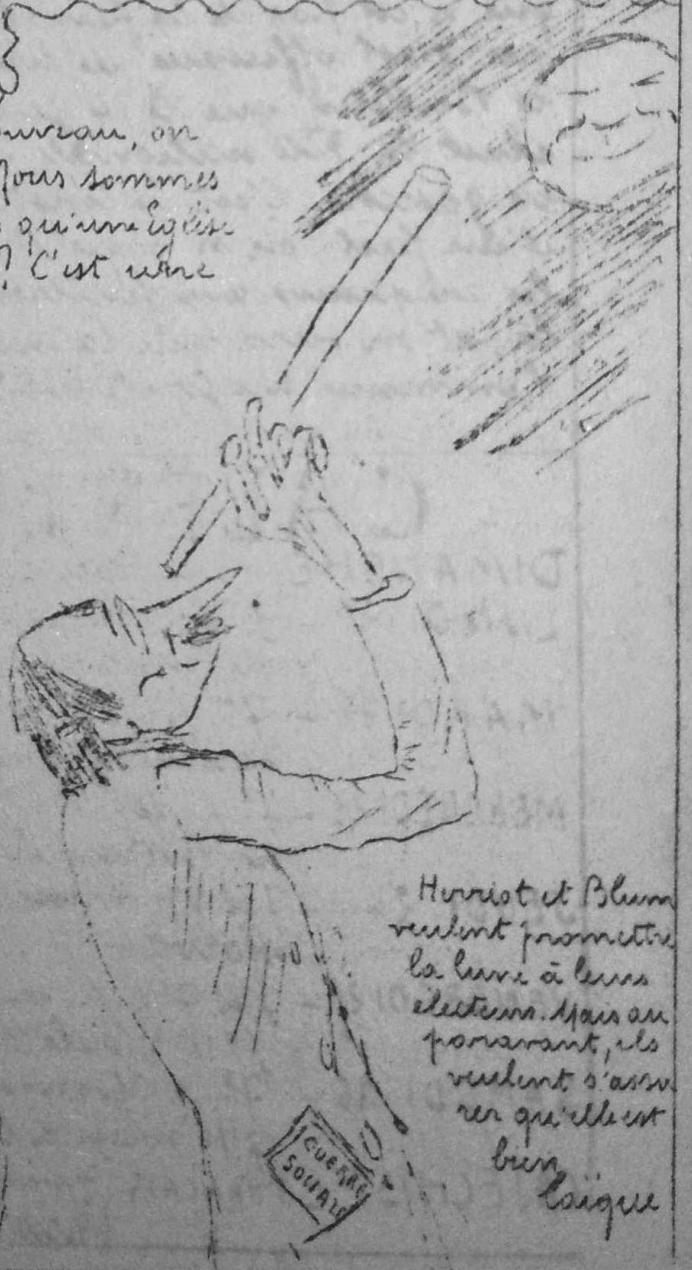 ouveau, on
Nous sommes
qu'une Eglise
? C'est une
Herriot et Blum
veulent promettre
la lune à leurs
electeurs. Mais au
paravant, ils
veulent s'assu
rer qu'elle est
bien
laïque
GUERRE
SOCIALE